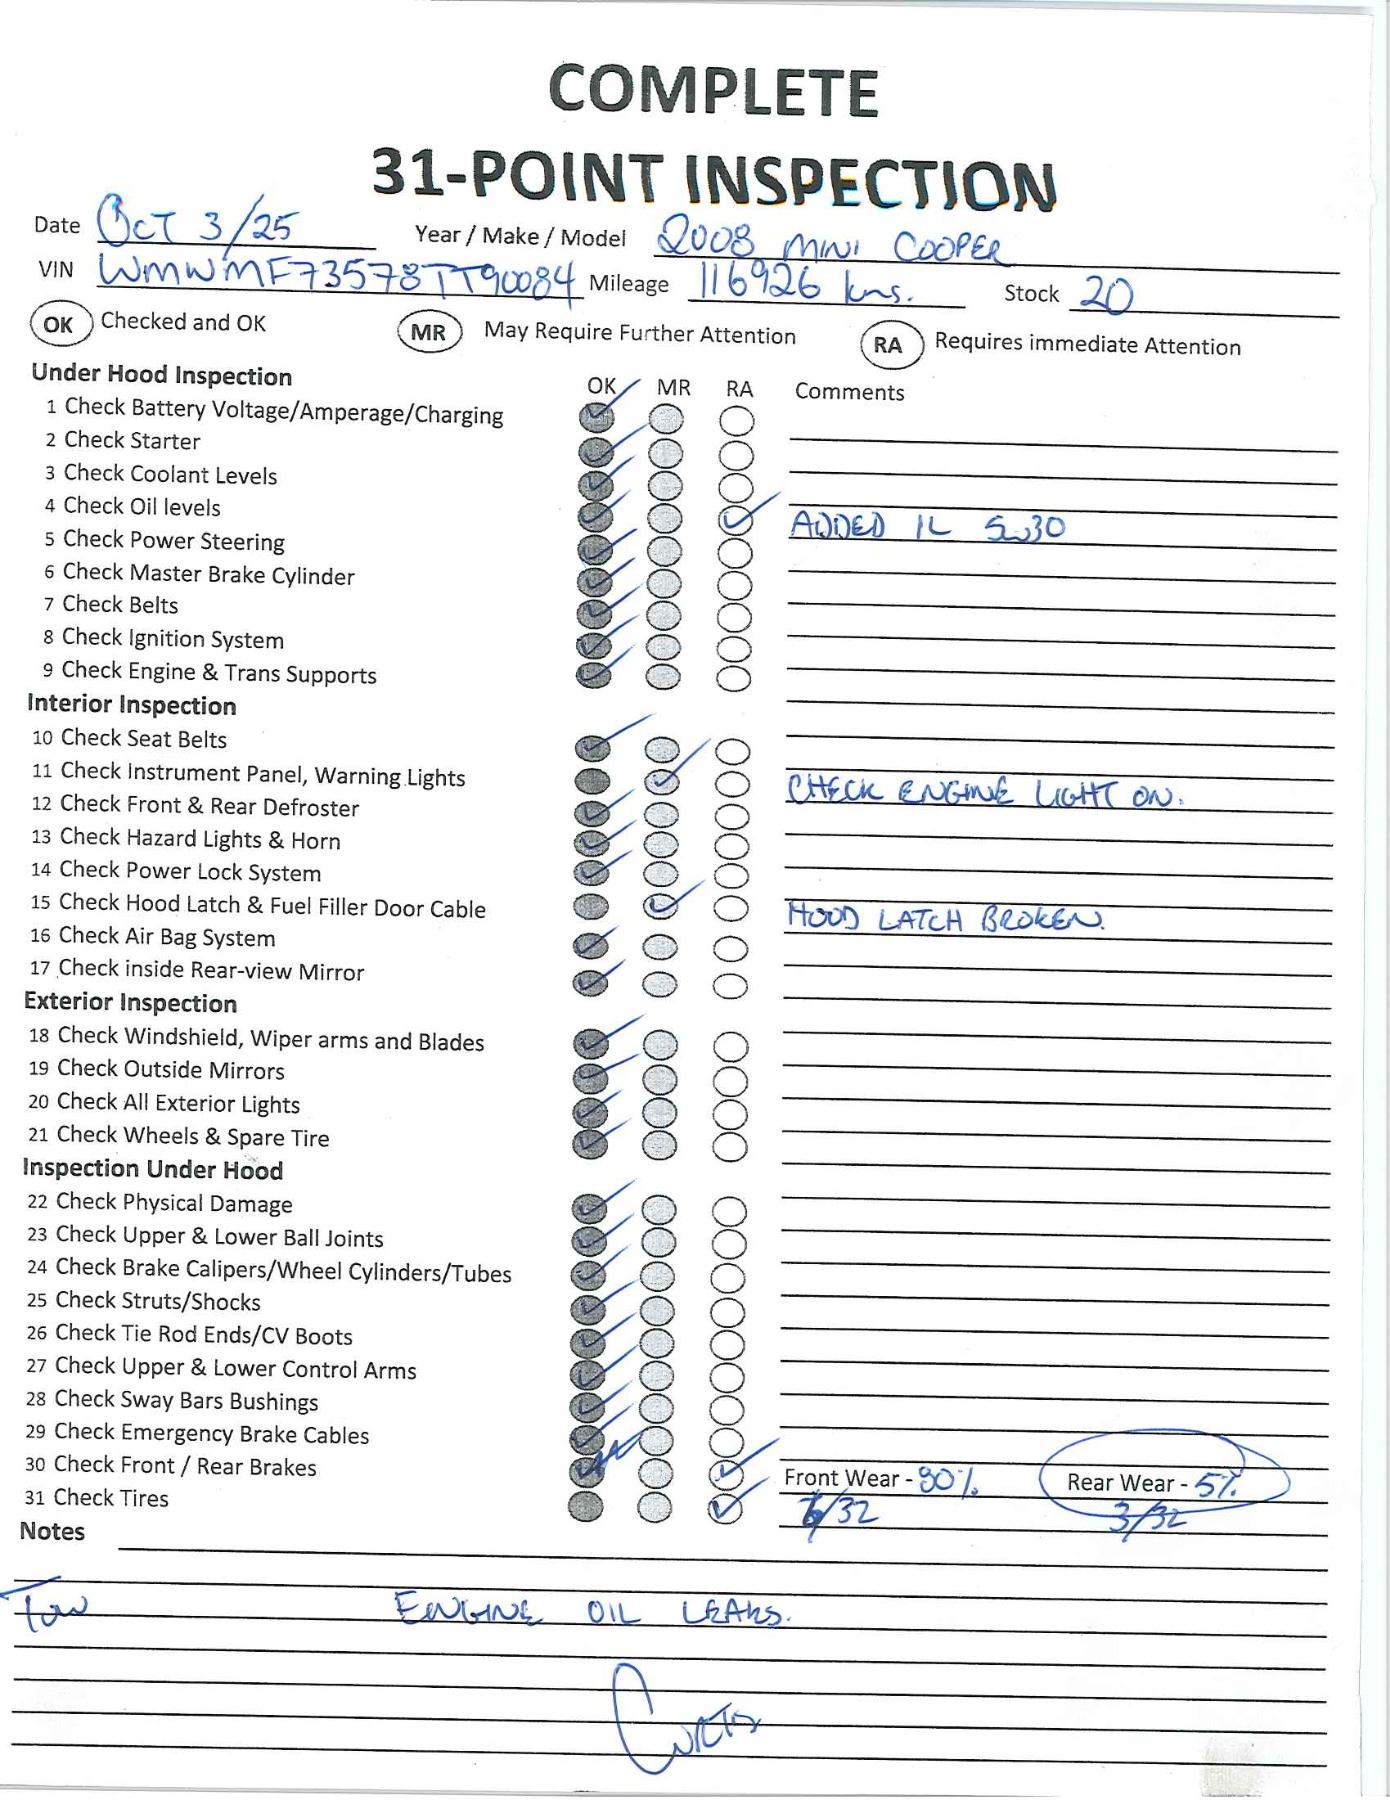 COMPLETE
31-POINT INSPECTION
Date OCT 3/25 Year / Make / Model 2008 MINI COOPER
VIN WMWMF73578TT90084 Mileage 116926 kms. Stock 20
OK Checked and OK MR May Require Further Attention RA Requires immediate Attention
Under Hood Inspection OK MR RA Comments
1 Check Battery Voltage/Amperage/Charging
2 Check Starter
3 Check Coolant Levels
4 Check Oil levels ADDED 1L 5w30
5 Check Power Steering
6 Check Master Brake Cylinder
7 Check Belts
8 Check Ignition System
9 Check Engine & Trans Supports
Interior Inspection
10 Check Seat Belts
11 Check Instrument Panel, Warning Lights CHECK ENGINE LIGHT ON.
12 Check Front & Rear Defroster
13 Check Hazard Lights & Horn
14 Check Power Lock System
15 Check Hood Latch & Fuel Filler Door Cable HOOD LATCH BROKEN.
16 Check Air Bag System
17 Check inside Rear-view Mirror
Exterior Inspection
18 Check Windshield, Wiper arms and Blades
19 Check Outside Mirrors
20 Check All Exterior Lights
21 Check Wheels & Spare Tire
Inspection Under Hood
22 Check Physical Damage
23 Check Upper & Lower Ball Joints
24 Check Brake Calipers/Wheel Cylinders/Tubes
25 Check Struts/Shocks
26 Check Tie Rod Ends/CV Boots
27 Check Upper & Lower Control Arms
28 Check Sway Bars Bushings
29 Check Emergency Brake Cables
30 Check Front / Rear Brakes Front Wear - 80% Rear Wear - 5%
31 Check Tires /32 3/32
Notes
Tow ENGINE OIL LEAKS.
Curtis